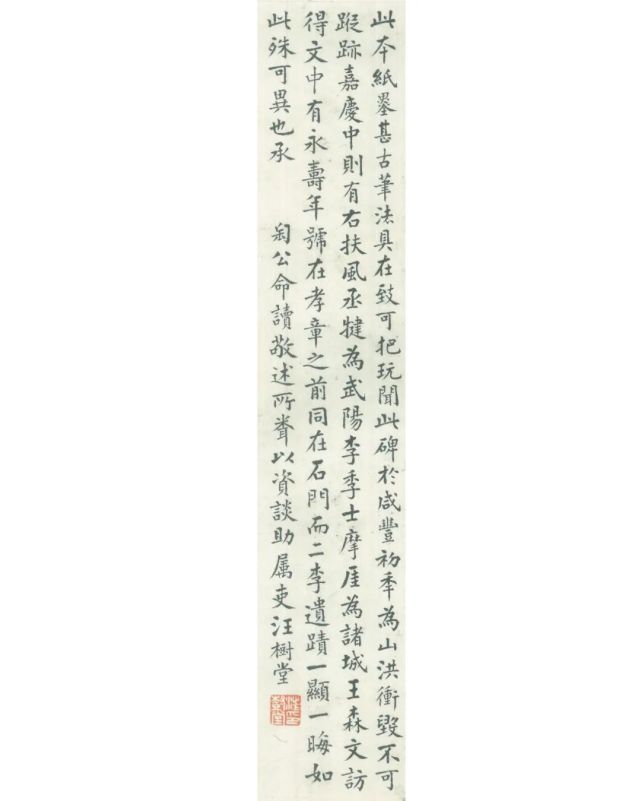 此本紙墨甚古筆法具在致可把玩聞此碑於咸豐初年為山洪衝毀不可
蹤跡嘉慶中則有右扶風丞犍為武陽李季士摩厓為諸城王森文訪
得文中有永壽年號在孝章之前同在石門而二李遺蹟一顯一晦如
此殊可異也承 匋公命讀敬述所聞以資談助属吏汪樹堂